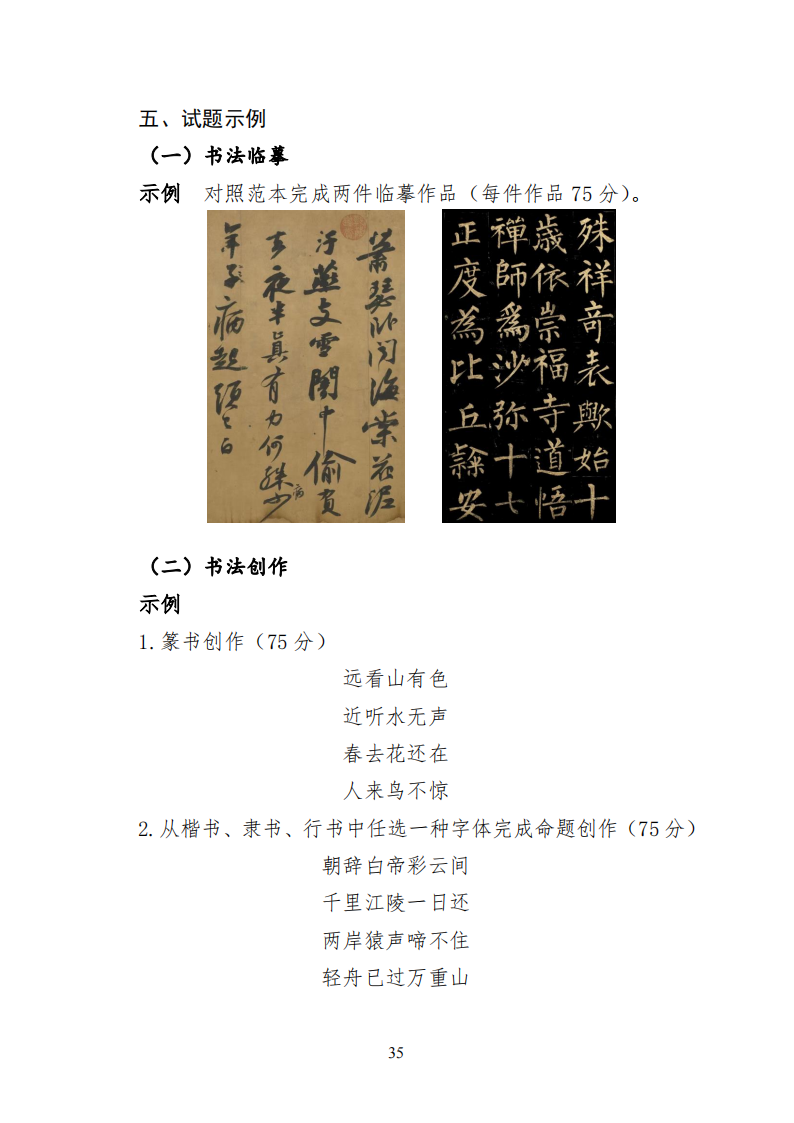 五、试题示例
（一）书法临摹
示例 对照范本完成两件临摹作品（每件作品 75 分）。
蕭瑟卧聞海棠花泥
汙燕支雪闇中偷負
去夜半眞有力何殊少
病
年子病起頭已白
殊祥奇表歟始十
歲依崇福寺道悟
禪師爲沙弥十七
正度為比丘隸安
（二）书法创作
示例
1.篆书创作（75 分）
远看山有色
近听水无声
春去花还在
人来鸟不惊
2.从楷书、隶书、行书中任选一种字体完成命题创作（75 分）
朝辞白帝彩云间
千里江陵一日还
两岸猿声啼不住
轻舟已过万重山
35